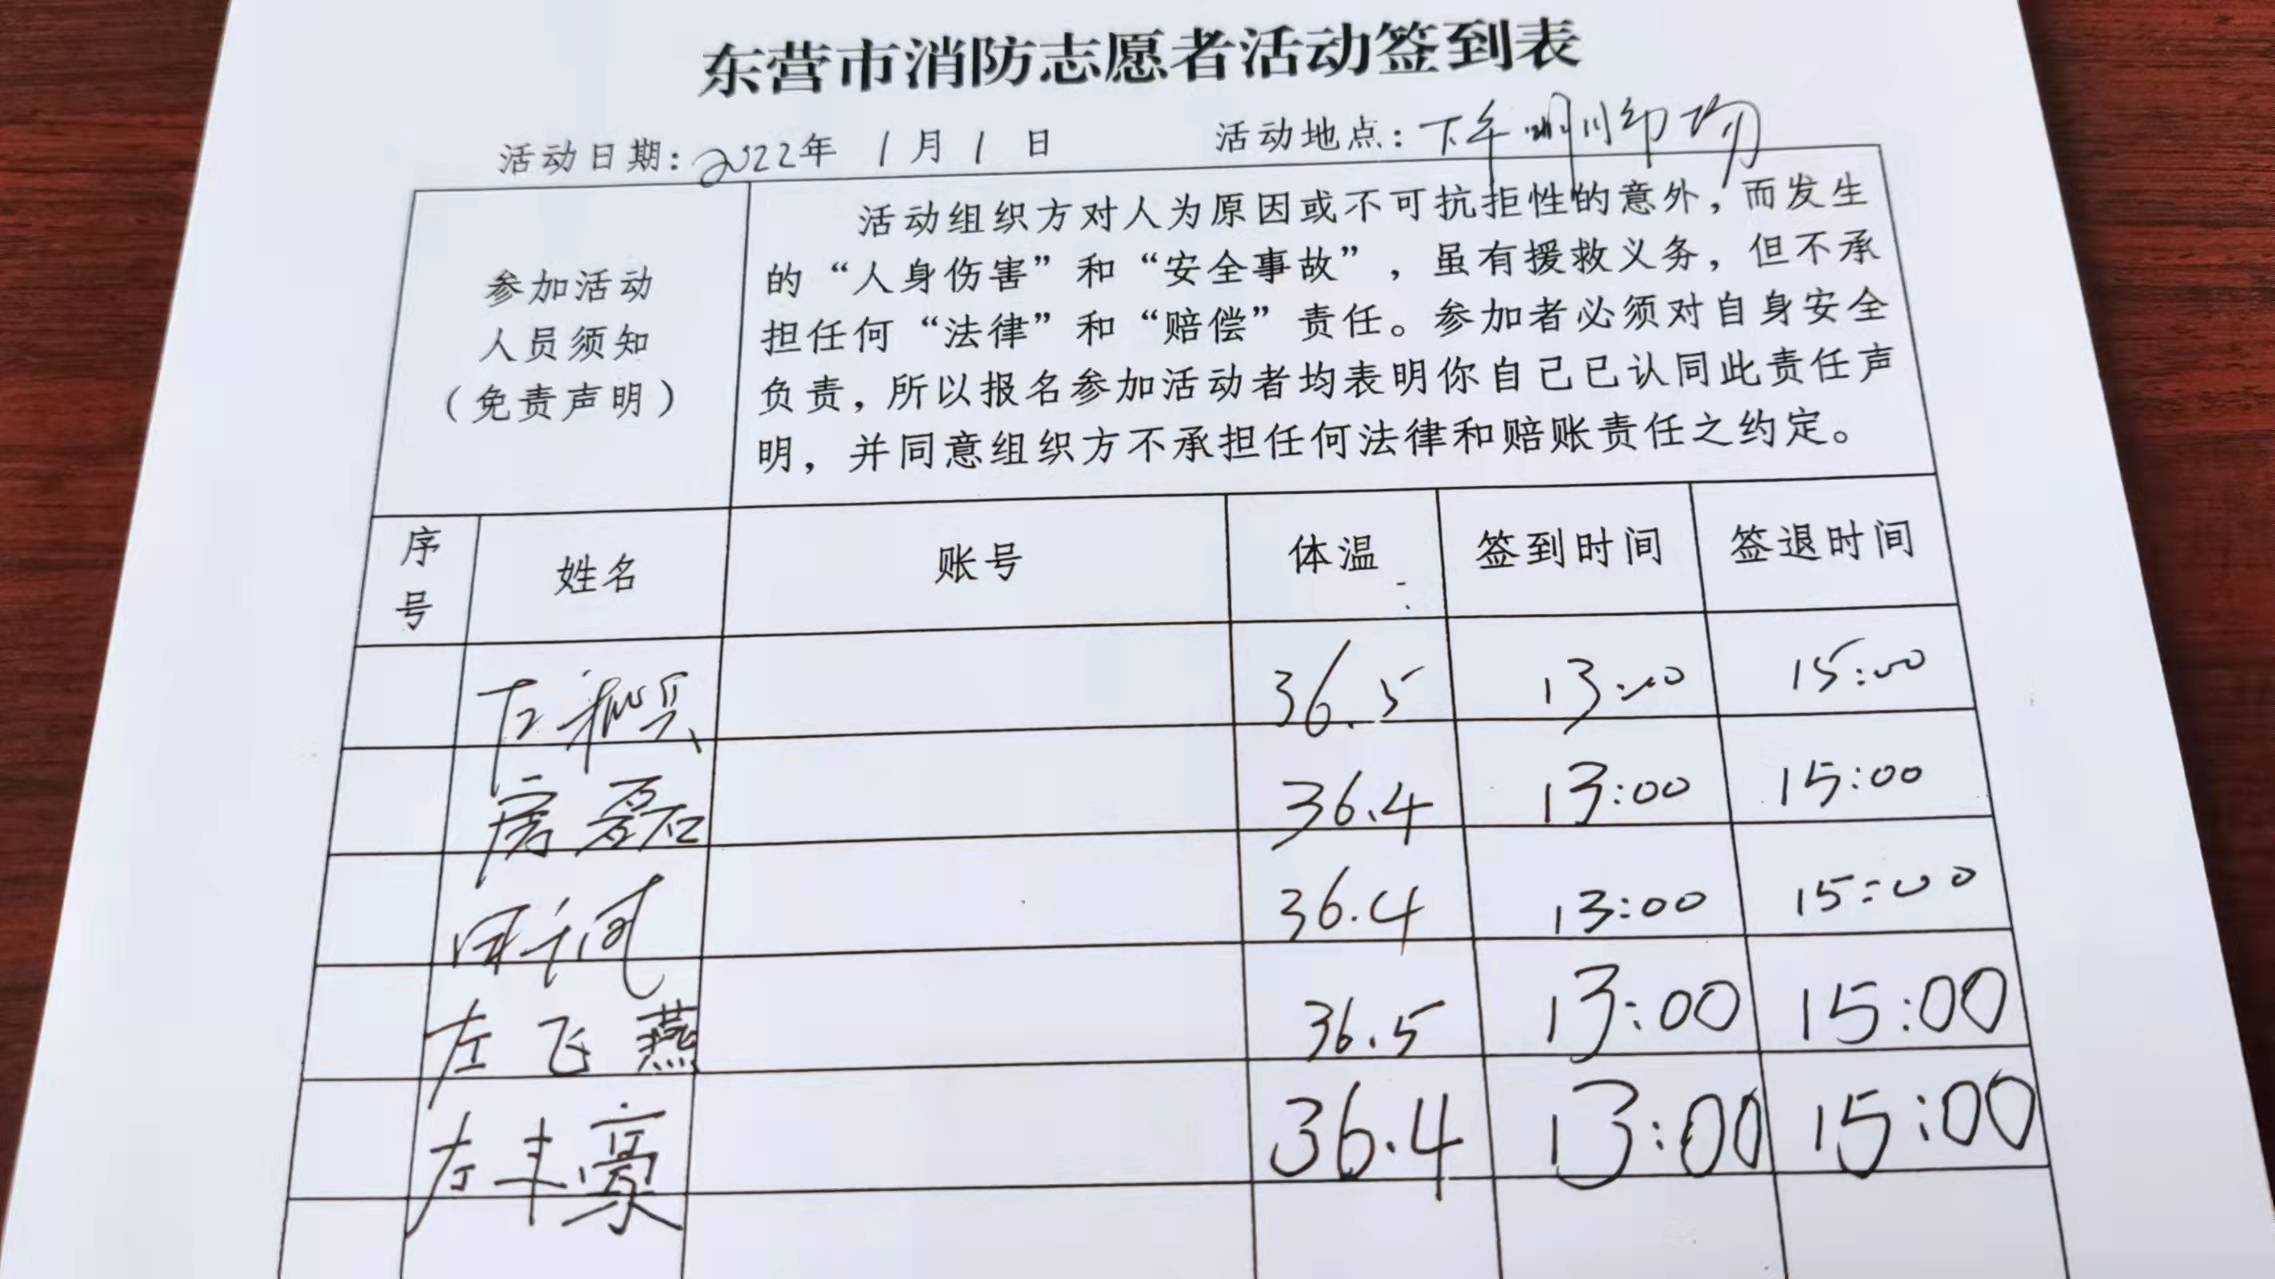 东营市消防志愿者活动签到表
活动日期:2022年 1月1日 活动地点:下午
参加活动
人员须知
(免责声明)
活动组织方对人为原因或不可抗拒性的意外,而发生
的“人身伤害”和“安全事故”,虽有援救义务,但不承
担任何“法律”和“赔偿”责任。参加者必须对自身安全
负责,所以报名参加活动者均表明你自己已认同此责任声
明,并同意组织方不承担任何法律和赔账责任之约定。
序号 姓名 账号 体温 签到时间 签退时间
36.5 13:00 15:00
房磊 36.4 13:00 15:00
36.4 13:00 15:00
左飞燕 36.5 13:00 15:00
左丰豪 36.4 13:00 15:00